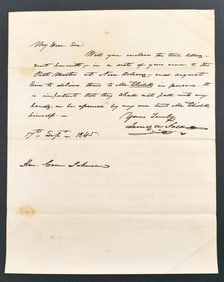 My Dear Sir:
Will you enclose the two letters,
sent herewith, in a note of your own to the
Post Master at New Orleans, and request
him to deliver them to Mr Slidell in person. It
is important that they should not fall into any
hands, or be opened by any one but Mr Slidell
himself.—
Yours Truly
James K. Polk
17th Sept. 1845
Hon. Cave Johnson